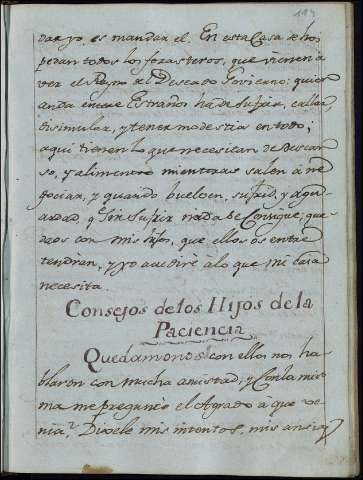 119
dar yo, es mandar el. En esta Casa se hos
pedan todos los forasteros, que vienen à
ver el Reyno del Deseado Govierno: quien
anda entre Estraños ha de sufrir, callar,
disimular, y tener modestia en todo;
aqui tienen lo que necesitan de descan
so, y alimento mientras salen á ne
gociar, y quando buelven, sufrid, y agu
ardad, q sin sufrir nada se consigue; que
daos con mis hijos, que ellos os entre
tendran, y yo acudiré à lo que mi casa
necesita.
Consejos de los Hijos de la
Paciencia
Quedamonos con ellos, nos ha
blaron con mucha amistad, y con la mis
ma me preguntó el Agrado à que ve
nia? Dixele mis intentos, mis ansias